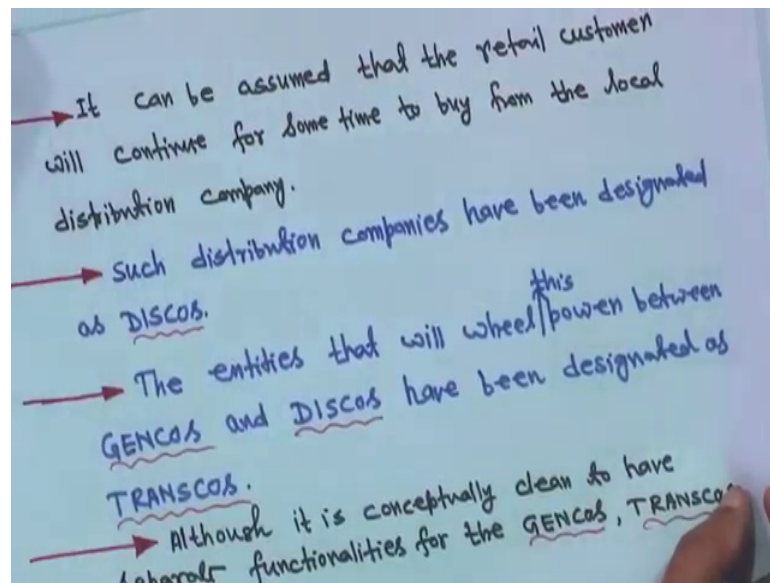 It can be assumed that the retail customer
will continue for some time to buy from the local
distribution company.
Such distribution companies have been designated
as DISCOS.
this
The entities that will wheel power between
GENCOS and DISCOS have been designated as
TRANSCOS.
Although it is conceptually clean to have
separate functionalities for the GENCOS, TRANSCO